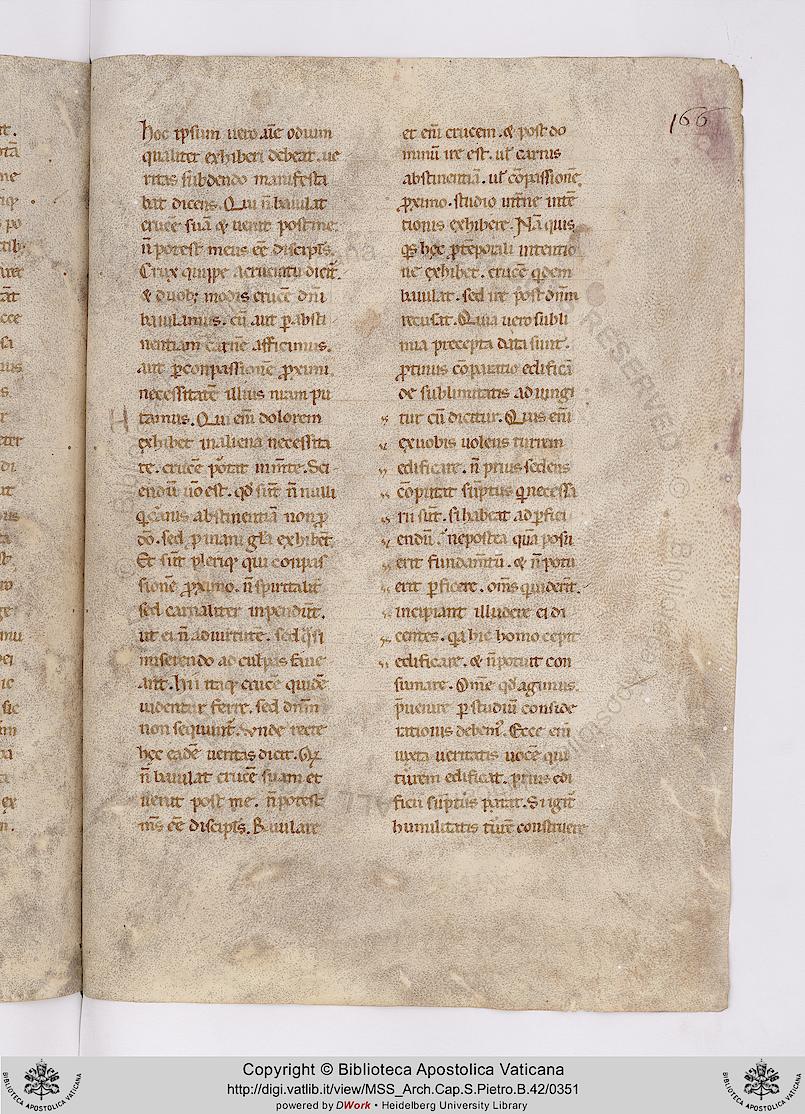 166
hoc ipsum uero aĩe odium
qualiter exhiberi debeat. ue
ritas subdendo manifesta
bat dicens. Qui ñ baiulat
crucẽ suã & uenit post me.
ñ potest meus eẽ discipłs.
Crux quippe a cruciatu dicit̃.
& duob; modis crucẽ dñi
baiulamus. cũ aut p absti
nentiam carnẽ afficimus.
aut p conpassionẽ proximi
necessitatẽ illius nr̃am pu
tamus. Qui eñi dolorem
exhibet in aliena necessita
te. crucẽ portat in m̃te. Sci
endũ u̾o est. qd̾ sunt ñnulli
q carnis abstinentiã non p
dõ. sed p inani gła exhibẽt
Et sunt pleriq; qui conpas
sionẽ proximo. ñ spiritalit̃
sed carnaliter inpendunt.
ut ei ñ ad uirtutẽ. sed q̃si
miserendo ad culpas faue
ant. Hii itaq; crucẽ quidẽ
uidentur ferre. sed dñm
non sequunt̃. Vnde recte
hęc eadẽ ueritas dicit. Qi
ñ baiulat crucẽ suam et
uenit post me. ñ potest
m̃s eẽ discipłs. Baiulare
et eñi crucem. & post do
minũ ire est. uł carnis
abstinentiã. uł cõpassionẽ
proximo. studio æt̃ne intẽ
tionis exhibere. Nã quis
qs hęc p temporali intentio
ne exhibet. crucẽ qdem
baiulat. sed ire post dñm
recusat. Quia uero subli
mia precepta data sunt.
protinus cõparatio edifican
dę sublimitatis adiungi
tur cũ dicitur. Quis eñi
ex uobis uolens turrem
edificare. ñ prius sedens
cõputat sũptus qui necessa
rii sunt. si habeat ad pfici
endũ. ne postea quã posu
erit fundam̃tũ. & ñ potu
erit pficere. oms̃ qui uiderit̃.
incipiant illudere ei di
centes. qa hic homo cepit
edificare. & ñ potuit con
sumare. Om̃e qd̾ agimus.
puenire p studiũ conside
rationis debem̾. Ecce eñi
iuxta ueritatis uocẽ qui
turrem edificat. prius edi
ficii sũptus parat. Si igit̃
humilitatis turrẽ construere
Copyright © Biblioteca Apostolica Vaticana
http://digi.vatlib.it/view/MSS_Arch.Cap.S.Pietro.B.42/0351
powered by DWork • Heidelberg University Library